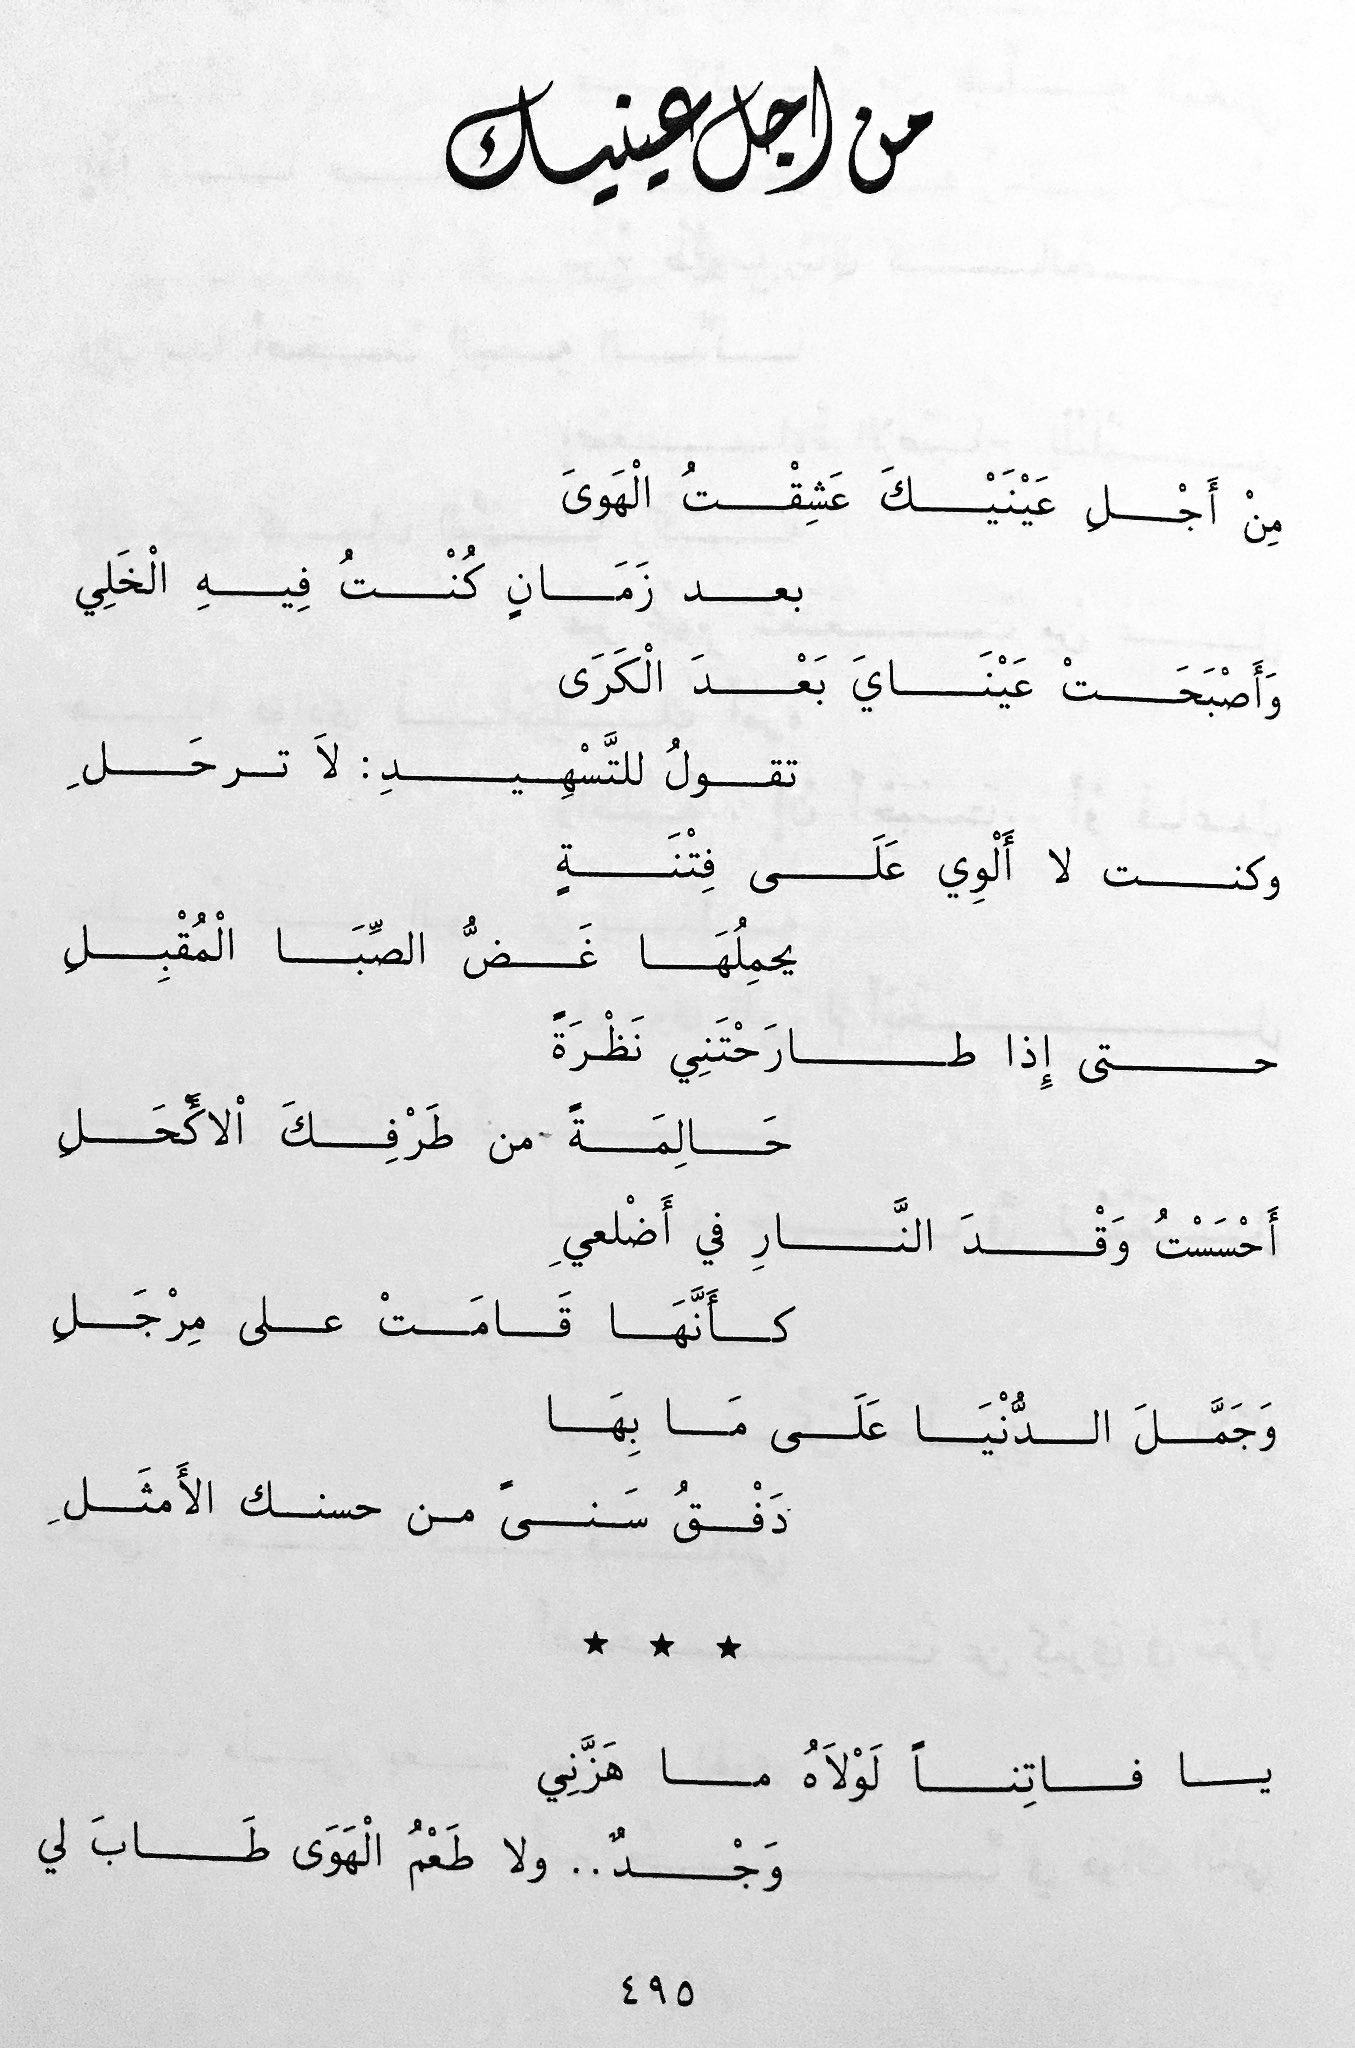 من اجل عينيك
مِنْ أَجْلِ عَيْنَيْكَ عَشِقْتُ الْهَوىَ
بعد زَمَانٍ كُنْتُ فِيهِ الْخَلِي
وَأَصْبَحَتْ عَيْنَايَ بَعْدَ الْكَرَى
تقولُ للتَّسْهِيدِ: لاَ ترحَلِ
وكنت لا أَلْوِي عَلَى فِتْنَةٍ
يحمِلُهَا غَضُّ الصِّبَا الْمُقْبِلِ
حتى إِذا طارَحْتَنِي نَظْرَةً
حَالِمَةً من طَرْفِكَ اْلاكَْحَلِ
أَحْسَسْتُ وَقْدَ النَّارِ في أَضْلعيِ
كأَنَّهَا قَامَتْ على مِرْجَلِ
وَجَمَّلَ الدُّنْيَا عَلَى مَا بِهَا
دَفْقُ سَنىً من حسنك الأَمثَلِ
★ ★ ★
يا فاتِناً لَوْلاَهُ ما هَزَّنِي
وَجْدٌ.. ولا طَعْمُ الْهَوَى طَابَ لي
٤٩٥